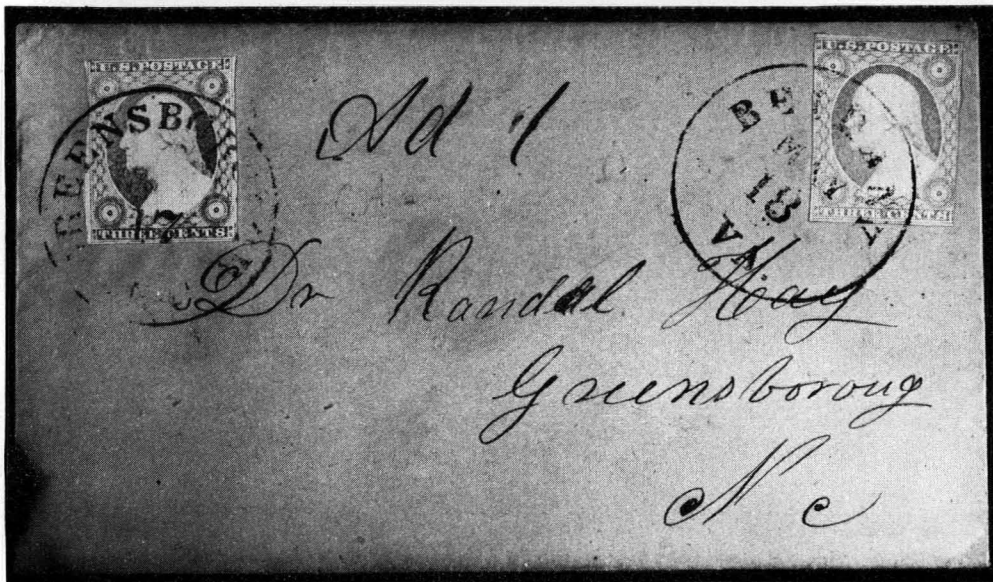 U.S. POSTAGE
THREE CENTS
REENSB
17
Ad 1
U.S. POSTAGE
THREE CENTS
BE
M
18
VA
Dr Randal Hay
Greensboroug
N c